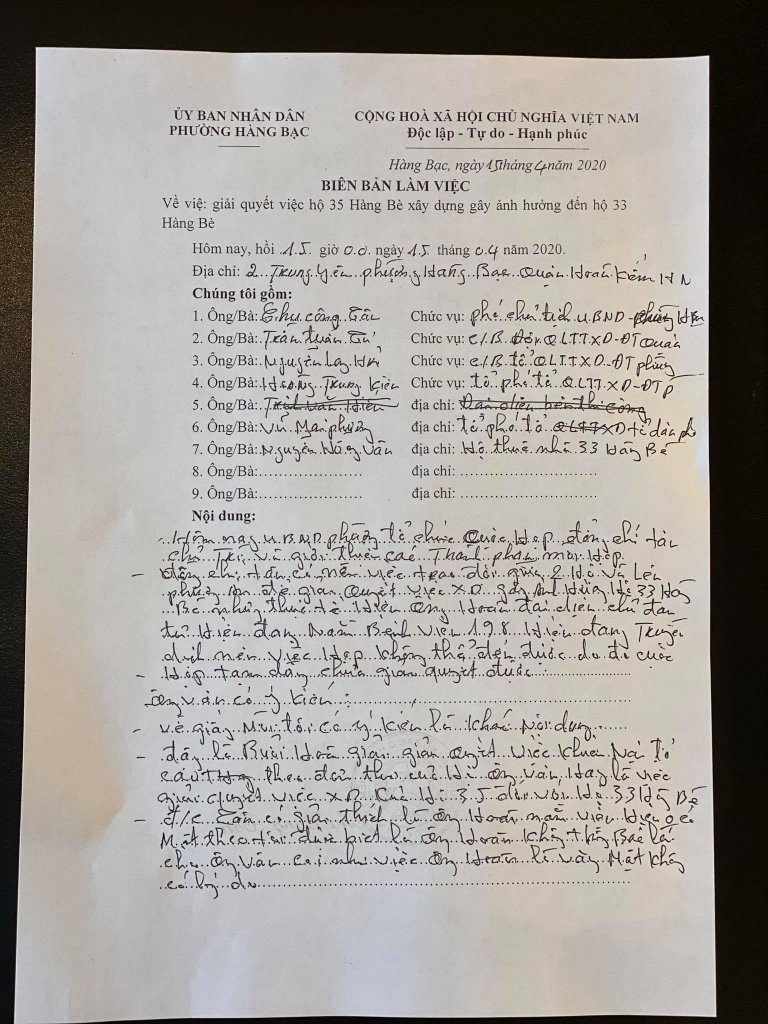 ỦY BAN NHÂN DÂN
PHƯỜNG HÀNG BẠC
CỘNG HOÀ XÃ HỘI CHỦ NGHĨA VIỆT NAM
Độc lập - Tự do - Hạnh phúc
Hàng Bạc, ngày 15 tháng 4 năm 2020
BIÊN BẢN LÀM VIỆC
Về việ: giải quyết việc hộ 35 Hàng Bè xây dựng gây ảnh hưởng đến hộ 33
Hàng Bè
Hôm nay, hồi 15 giờ 00 ngày 15 tháng 04 năm 2020.
Địa chỉ: 2 Trung Yên phường Hàng Bạc Quận Hoàn Kiếm HN
Chúng tôi gồm:
1. Ông/Bà: Chu công Tân Chức vụ: phó chủ tịch UBND phường
2. Ông/Bà: Trần Tuấn Chức vụ: C/B Đội QLTTXD-ĐT Quận
3. Ông/Bà: Nguyễn Chức vụ: C/B tổ QLTTXD-ĐT phường
4. Ông/Bà: Hoàng Trung Kiên Chức vụ: tổ phó tổ QLTTXD-ĐT P
5. Ông/Bà: địa chỉ: Đại diện bên thi công
6. Ông/Bà: Vũ Mai phương địa chỉ: tổ phó tổ QLTTXD tổ dân phố
7. Ông/Bà: Nguyễn Hồng Vân địa chỉ: Hộ thuê nhà 33 Hàng Bè
8. Ông/Bà: địa chỉ:
9. Ông/Bà: địa chỉ:
Nội dung:
Hôm nay UBND phường tổ chức cuộc Họp đồng chí tân
chủ trì và giới thiệu các Thành phần mời Họp
- đồng chí tân có nêu việc trao đổi giữa 2 Hộ và lên
phường để giải Quyết việc XD gây Hộ 33 Hàng
Bè nhưng thực tế Hiện Ông Hoàn đại diện chủ đầu
tư Hiện đang Nằm Bệnh viện 198 Hiện đang Truyền
dịch nên việc Họp không thể đến được do đó cuộc
- Họp tạm dừng chưa giải quyết được
Ông vân có ý kiến:
- về giấy Mời tôi có ý kiến là khác Nội dung
- đây là Buổi Hoà giải giải quyết việc khiếu Nại
theo đơn thư của Ông Vân Hay là việc
giải quyết việc XD của Hộ 35 đối với Hộ 33 Hàng Bè
- đ/c Tân có giải thích là Ông Hoàn nằm viện
Mặt theo tôi được biết là Ông Hoàn không thông Báo là
cho Ông Vân coi như việc Ông Hoàn là vắng Mặt không
có lý do